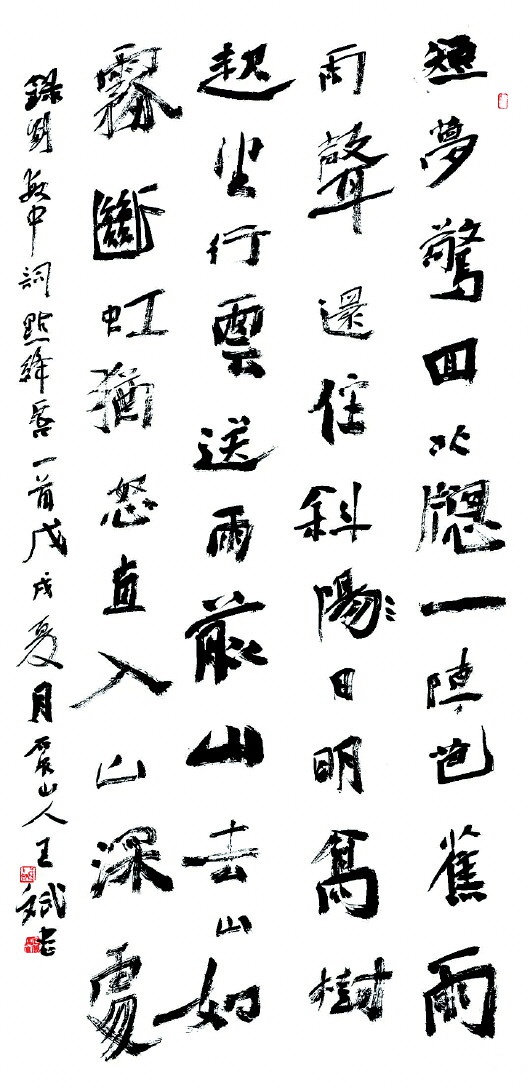 短夢驚回北牕一陣芭蕉雨
雨聲還住斜陽日明高樹
起坐行雲送雨前山去山如
霧斷虹猶怒直入山深處
錄劉敏中詞點絳唇一首戊戌夏月山人王斌書